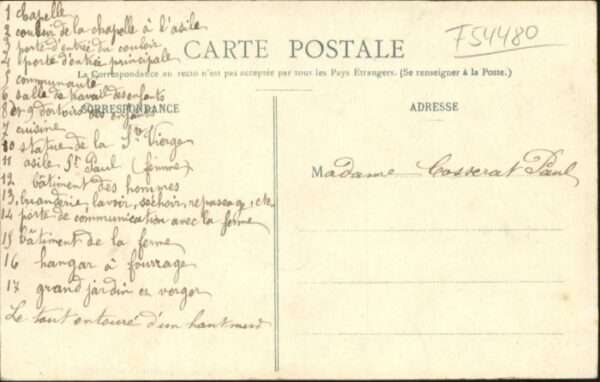 1 chapelle
2 couloir de la chapelle à l'asile
3 porte d'entrée du couloir
4 porte d'entrée principale
5 communauté
6 salle de travail des enfants
8 et 9 dortoirs des enfants
7 cuisine
10 statue de la Ste Vierge
11 asile St Paul (femme)
12 bâtiment des hommes
13, buanderie, lavoir, séchoir, repassage, etc
14 porte de communication avec la ferme
15 bâtiment de la ferme
16 hangar à fourrage
17 grand jardin et verger
Le tout entouré d'un haut mur
CARTE POSTALE
La Correspondance au recto n'est pas acceptée par tous les Pays Etrangers. (Se renseigner à la Poste.)
CORRESPONDANCE
ADRESSE
F54480
Madame Cosserat Paul